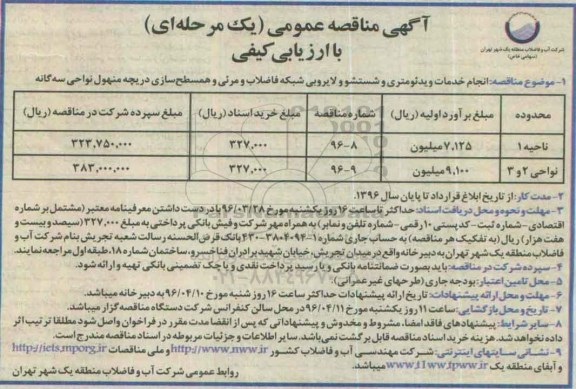 آگهی مناقصه عمومی (یک مرحله‌ای)
با ارزیابی کیفی
شرکت آب و فاضلاب منطقه یک شهر تهران
(سهامی خاص)
۱- موضوع مناقصه: انجام خدمات ویدئومتری و شستشو و لایروبی شبکه فاضلاب و مرئی و همسطح‌سازی دریچه منهول نواحی سه‌گانه
محدوده مبلغ برآورد اولیه (ریال) شماره مناقصه مبلغ خرید اسناد (ریال) مبلغ سپرده شرکت در مناقصه (ریال)
ناحیه ۱ ۷,۱۲۵ میلیون ۹۶-۸ ۳۲۷,۰۰۰ ۳۲۳,۷۵۰,۰۰۰
نواحی ۲ و ۳ ۹,۱۰۰ میلیون ۹۶-۹ ۳۲۷,۰۰۰ ۳۸۳,۰۰۰,۰۰۰
۲- مدت کار: از تاریخ ابلاغ قرارداد تا پایان سال ۱۳۹۶.
۳- مهلت و نحوه و محل دریافت اسناد: حداکثر تا ساعت ۱۶ روز یکشنبه مورخ ۹۶/۰۳/۲۸ با در دست داشتن معرفینامه معتبر (مشتمل بر شماره
اقتصادی- شماره ثبت- کدپستی ۱۰ رقمی- شماره تلفن و نمابر) به همراه مهر شرکت و فیش بانکی پرداختی به مبلغ ۳۲۷,۰۰۰ (سیصد و بیست و
هفت هزار) ریال (به تفکیک هر مناقصه) به حساب جاری شماره بانک قرض‌الحسنه رسالت شعبه تجریش بنام شرکت آب و
فاضلاب منطقه یک شهر تهران به دبیرخانه واقع در میدان تجریش، خیابان شهید برادران فناخسرو، ساختمان شماره ۱۸، طبقه اول مراجعه نمایند.
۴- سپرده شرکت در مناقصه: باید بصورت ضمانتنامه بانکی و یا رسید پرداخت نقدی و یا چک تضمینی بانکی تهیه و ارائه شود.
۵- محل تامین اعتبار: بودجه جاری (طرحهای غیر عمرانی)
۶- مهلت و محل ارائه پیشنهادات: تاریخ ارائه پیشنهادات حداکثر ساعت ۱۶ روز شنبه مورخ ۹۶/۰۴/۱۰ به دبیرخانه میباشد.
۷- تاریخ و محل بازگشایی: ساعت ۱۱ روز یکشنبه مورخ ۹۶/۰۴/۱۱ در محل سالن کنفرانس شرکت دستگاه مناقصه گزار میباشد.
۸- سایر شرایط: پیشنهادهای فاقد امضا، مشروط و مخدوش و پیشنهاداتی که پس از انقضا مدت مقرر در فراخوان واصل شود مطلقا ترتیب اثر
داده نخواهد شد. هزینه خرید اسناد مناقصه قابل برگشت نمی‌باشد. سایر اطلاعات و جزئیات مربوطه در اسناد مناقصه مندرج است.
۹- نشانی سایتهای اینترنتی: شرکت مهندسی آب و فاضلاب کشور http://www.nww.ir و ملی مناقصات http://iets.mporg.ir
و آبفای منطقه یک میباشد.
روابط عمومی شرکت آب و فاضلاب منطقه یک شهر تهران